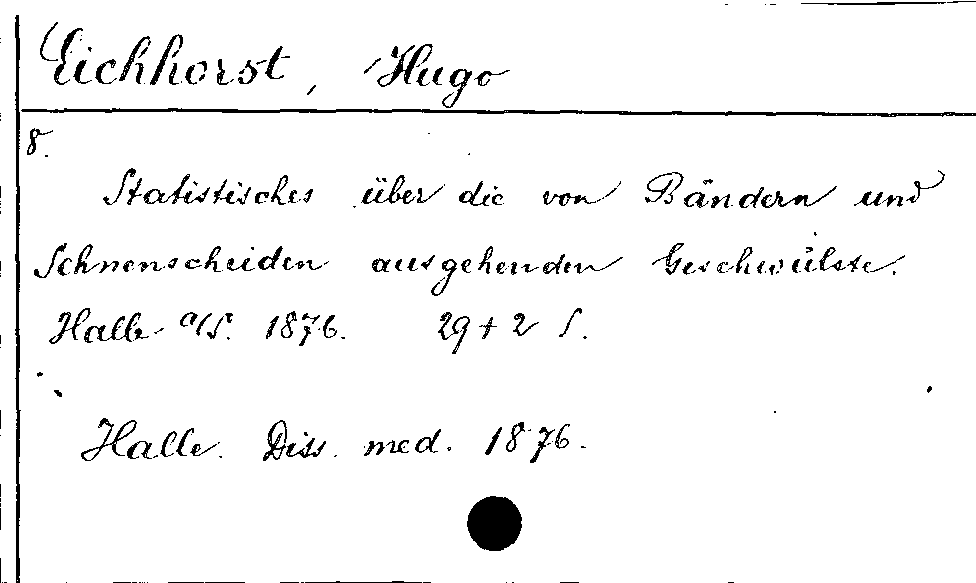 Eichhorst, Hugo
8.
Statistisches über die von Bändern und
Sehnenscheiden ausgehenden Geschwülste.
Halle a/S. 1876. 29 + 2 S.
Halle. Diss. med. 1876.